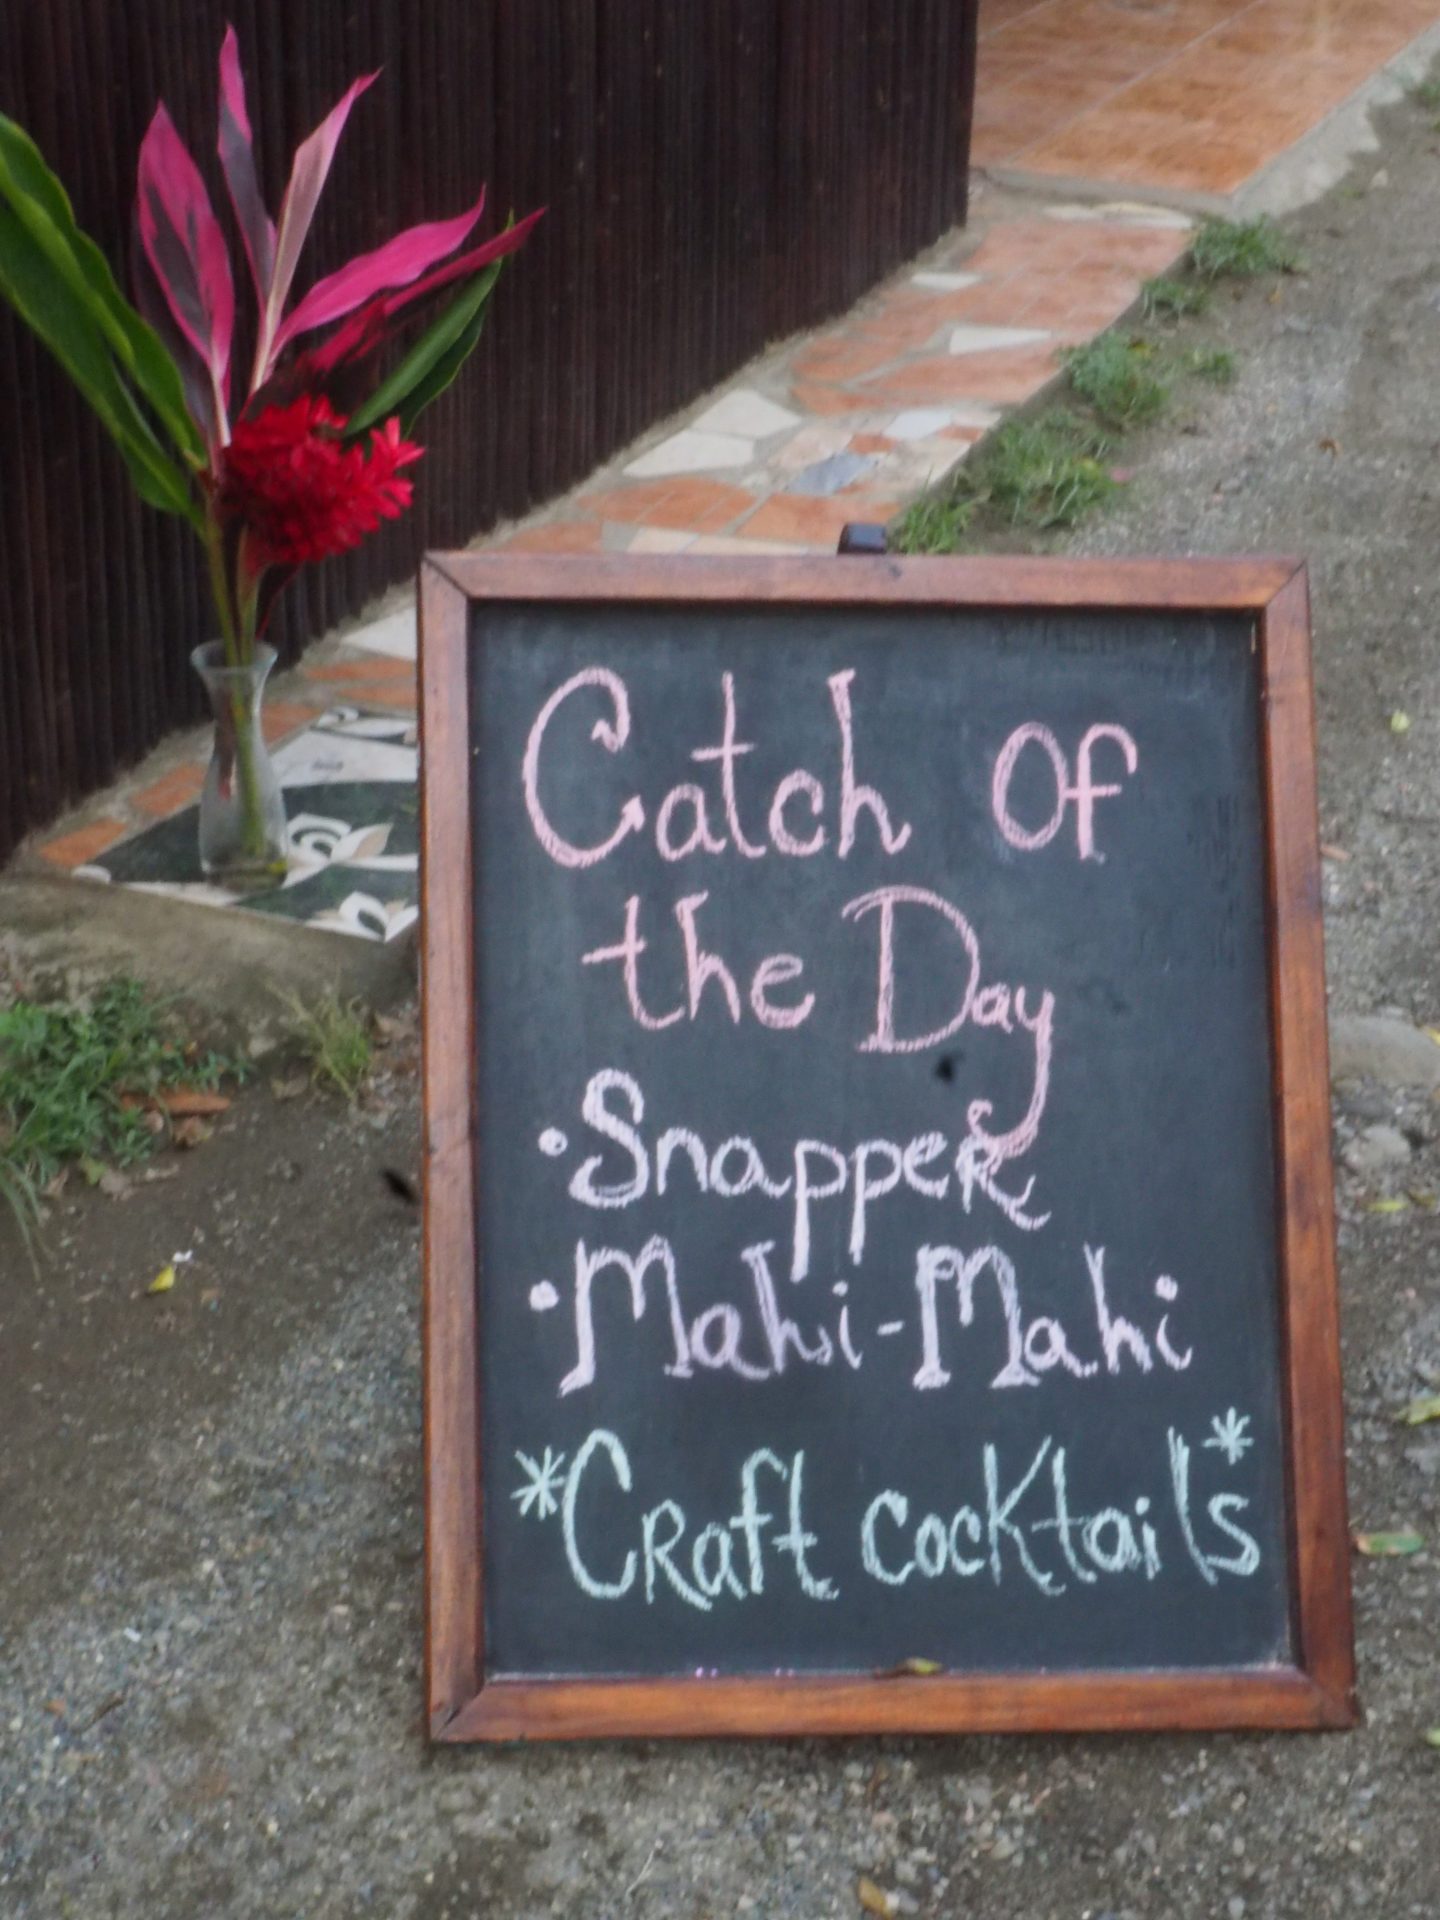 Catch Of
the Day
•Snapper
•Mahi-Mahi
*Craft cocktails*